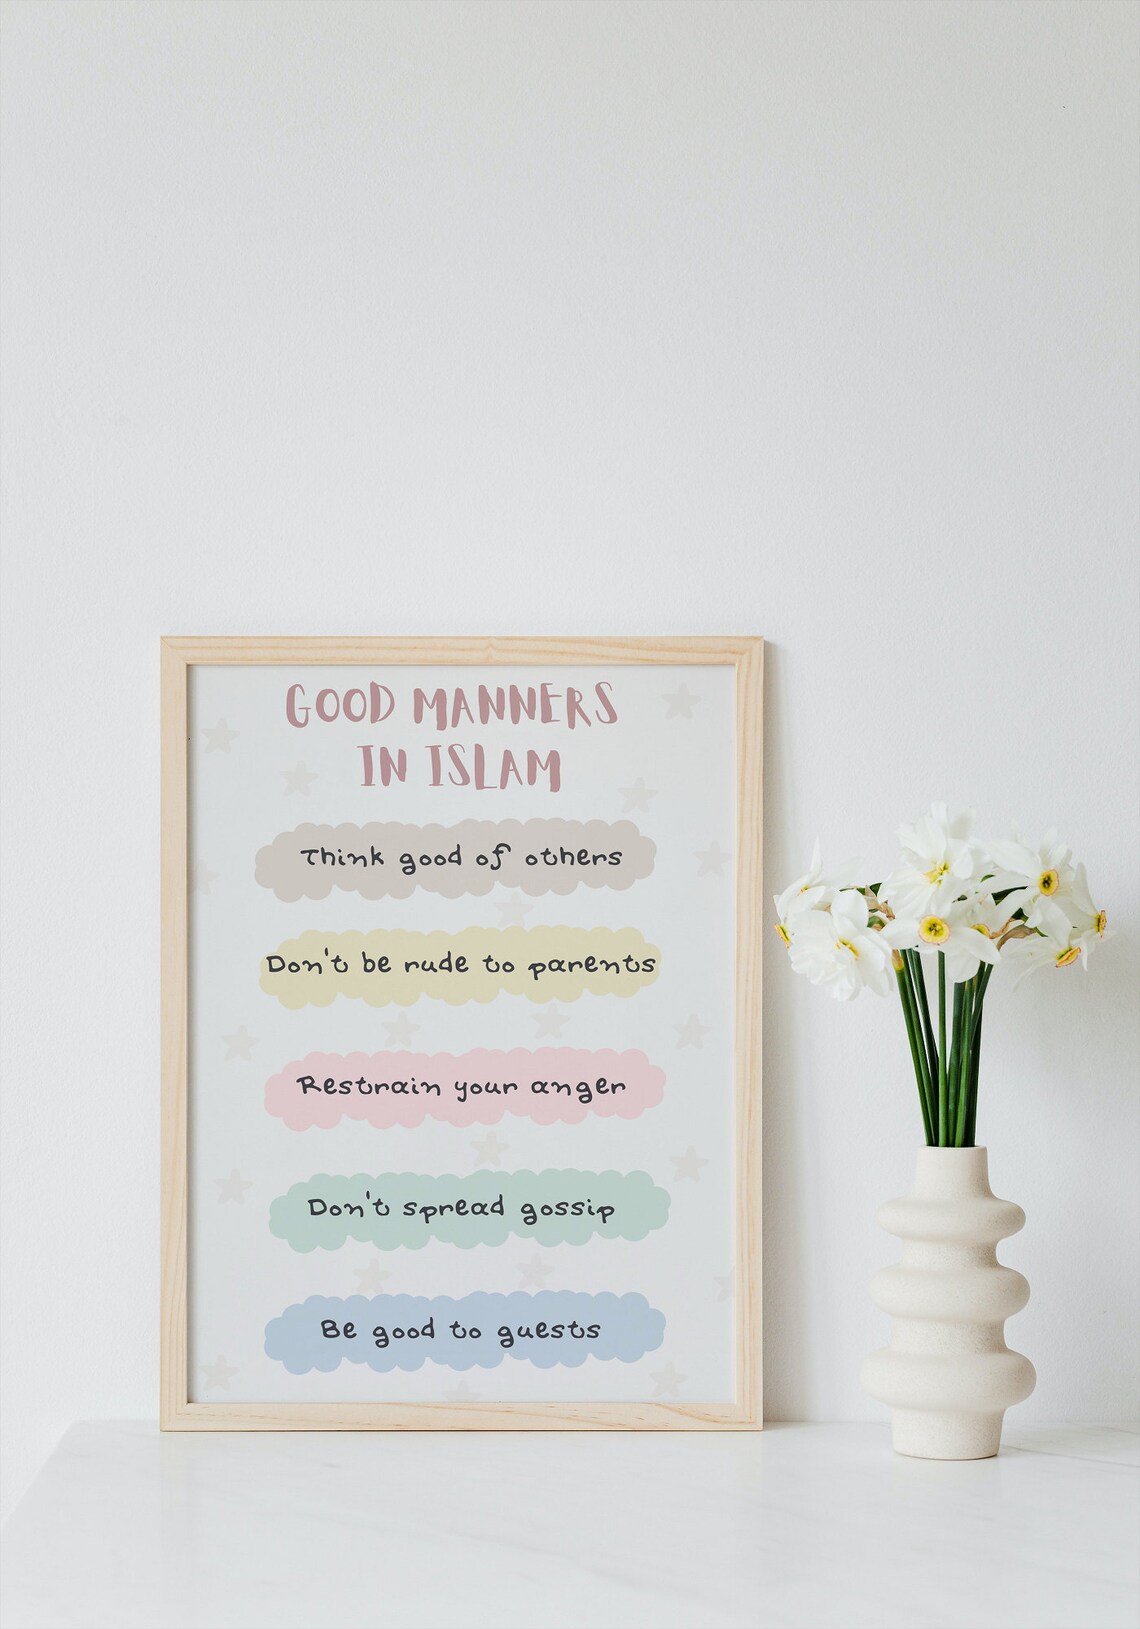 GOOD MANNERS
IN ISLAM
Think good of others
Don't be rude to parents
Restrain your anger
Don't spread gossip
Be good to guests